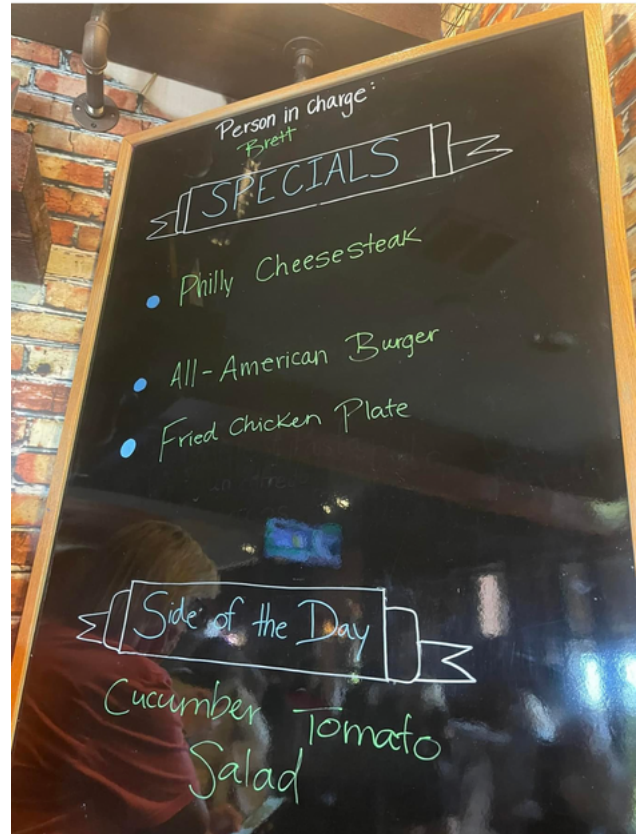 Person in charge:
Brett
SPECIALS
Philly Cheesesteak
All-American Burger
Fried Chicken Plate
Side of the Day
Cucumber Tomato
Salad